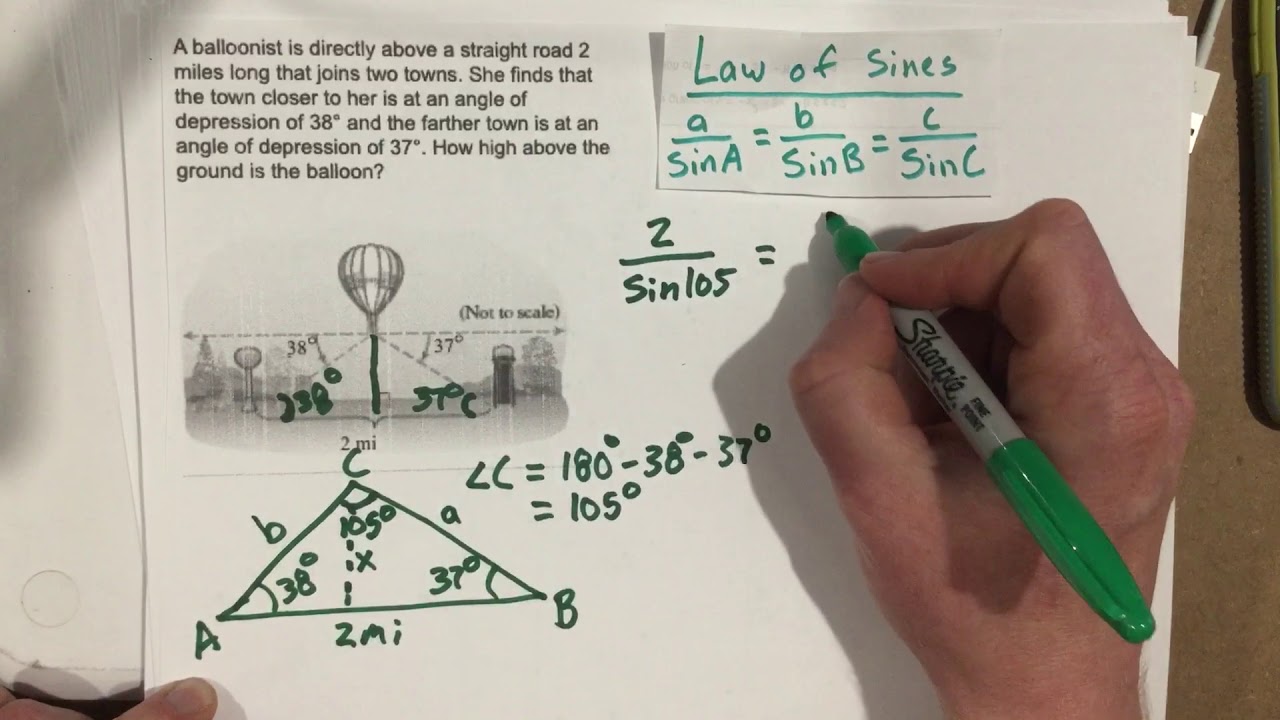 A balloonist is directly above a straight road 2
miles long that joins two towns. She finds that
the town closer to her is at an angle of
depression of 38° and the farther town is at an
angle of depression of 37°. How high above the
ground is the balloon?
Law of Sines
a/SinA = b/SinB = c/SinC
2/Sin105 =
(Not to scale)
38° 37°
38° 37°
2 mi
∠C = 180° - 38° - 37°
= 105°
C
b 105° a
x
38° 37°
A B
2mi
Sharpie.
FINE
POINT